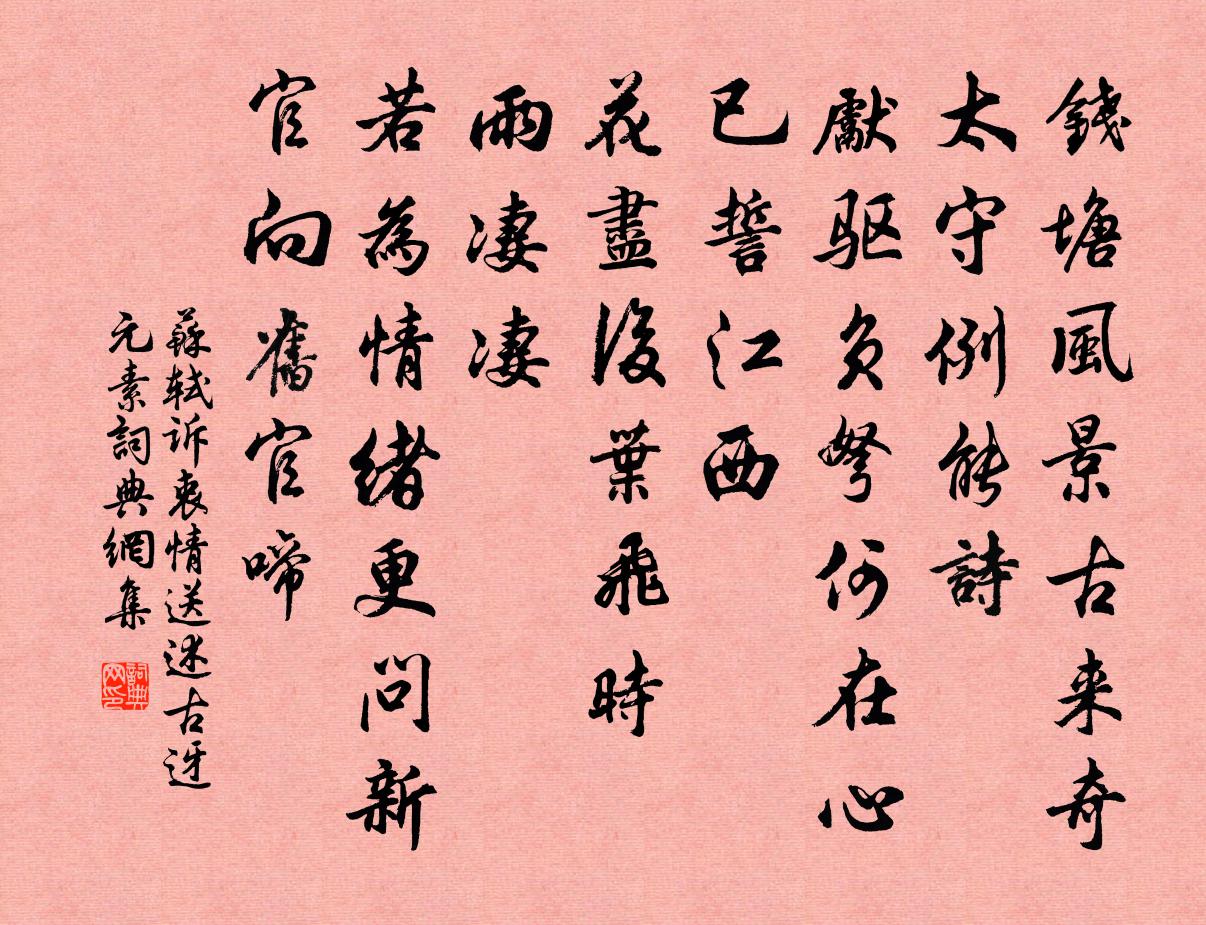 錢塘風景古来奇
太守例能詩
獻驱负弩何在心
已誓江西
花盡後葉飛時
雨凄凄
若為情緒更問新
官向舊官啼
蘇軾訴衷情送述古迓
元素詞典網集
詞典网印